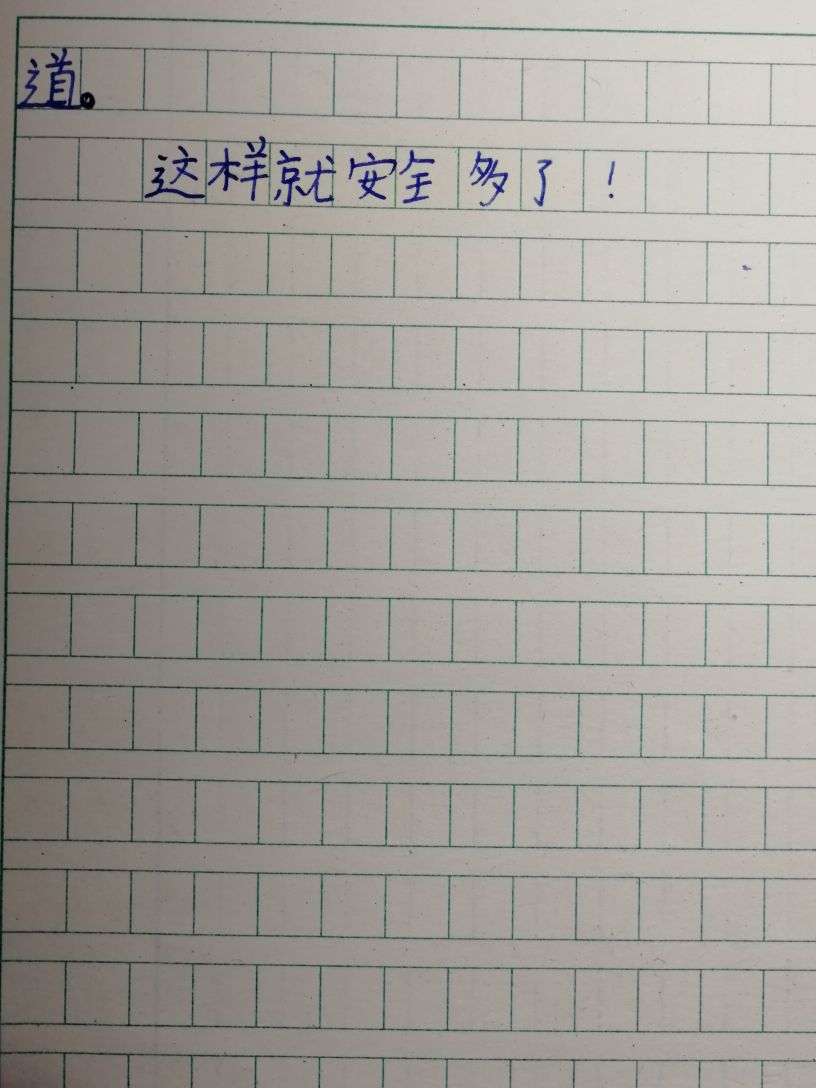 道。
这样就安全多了！